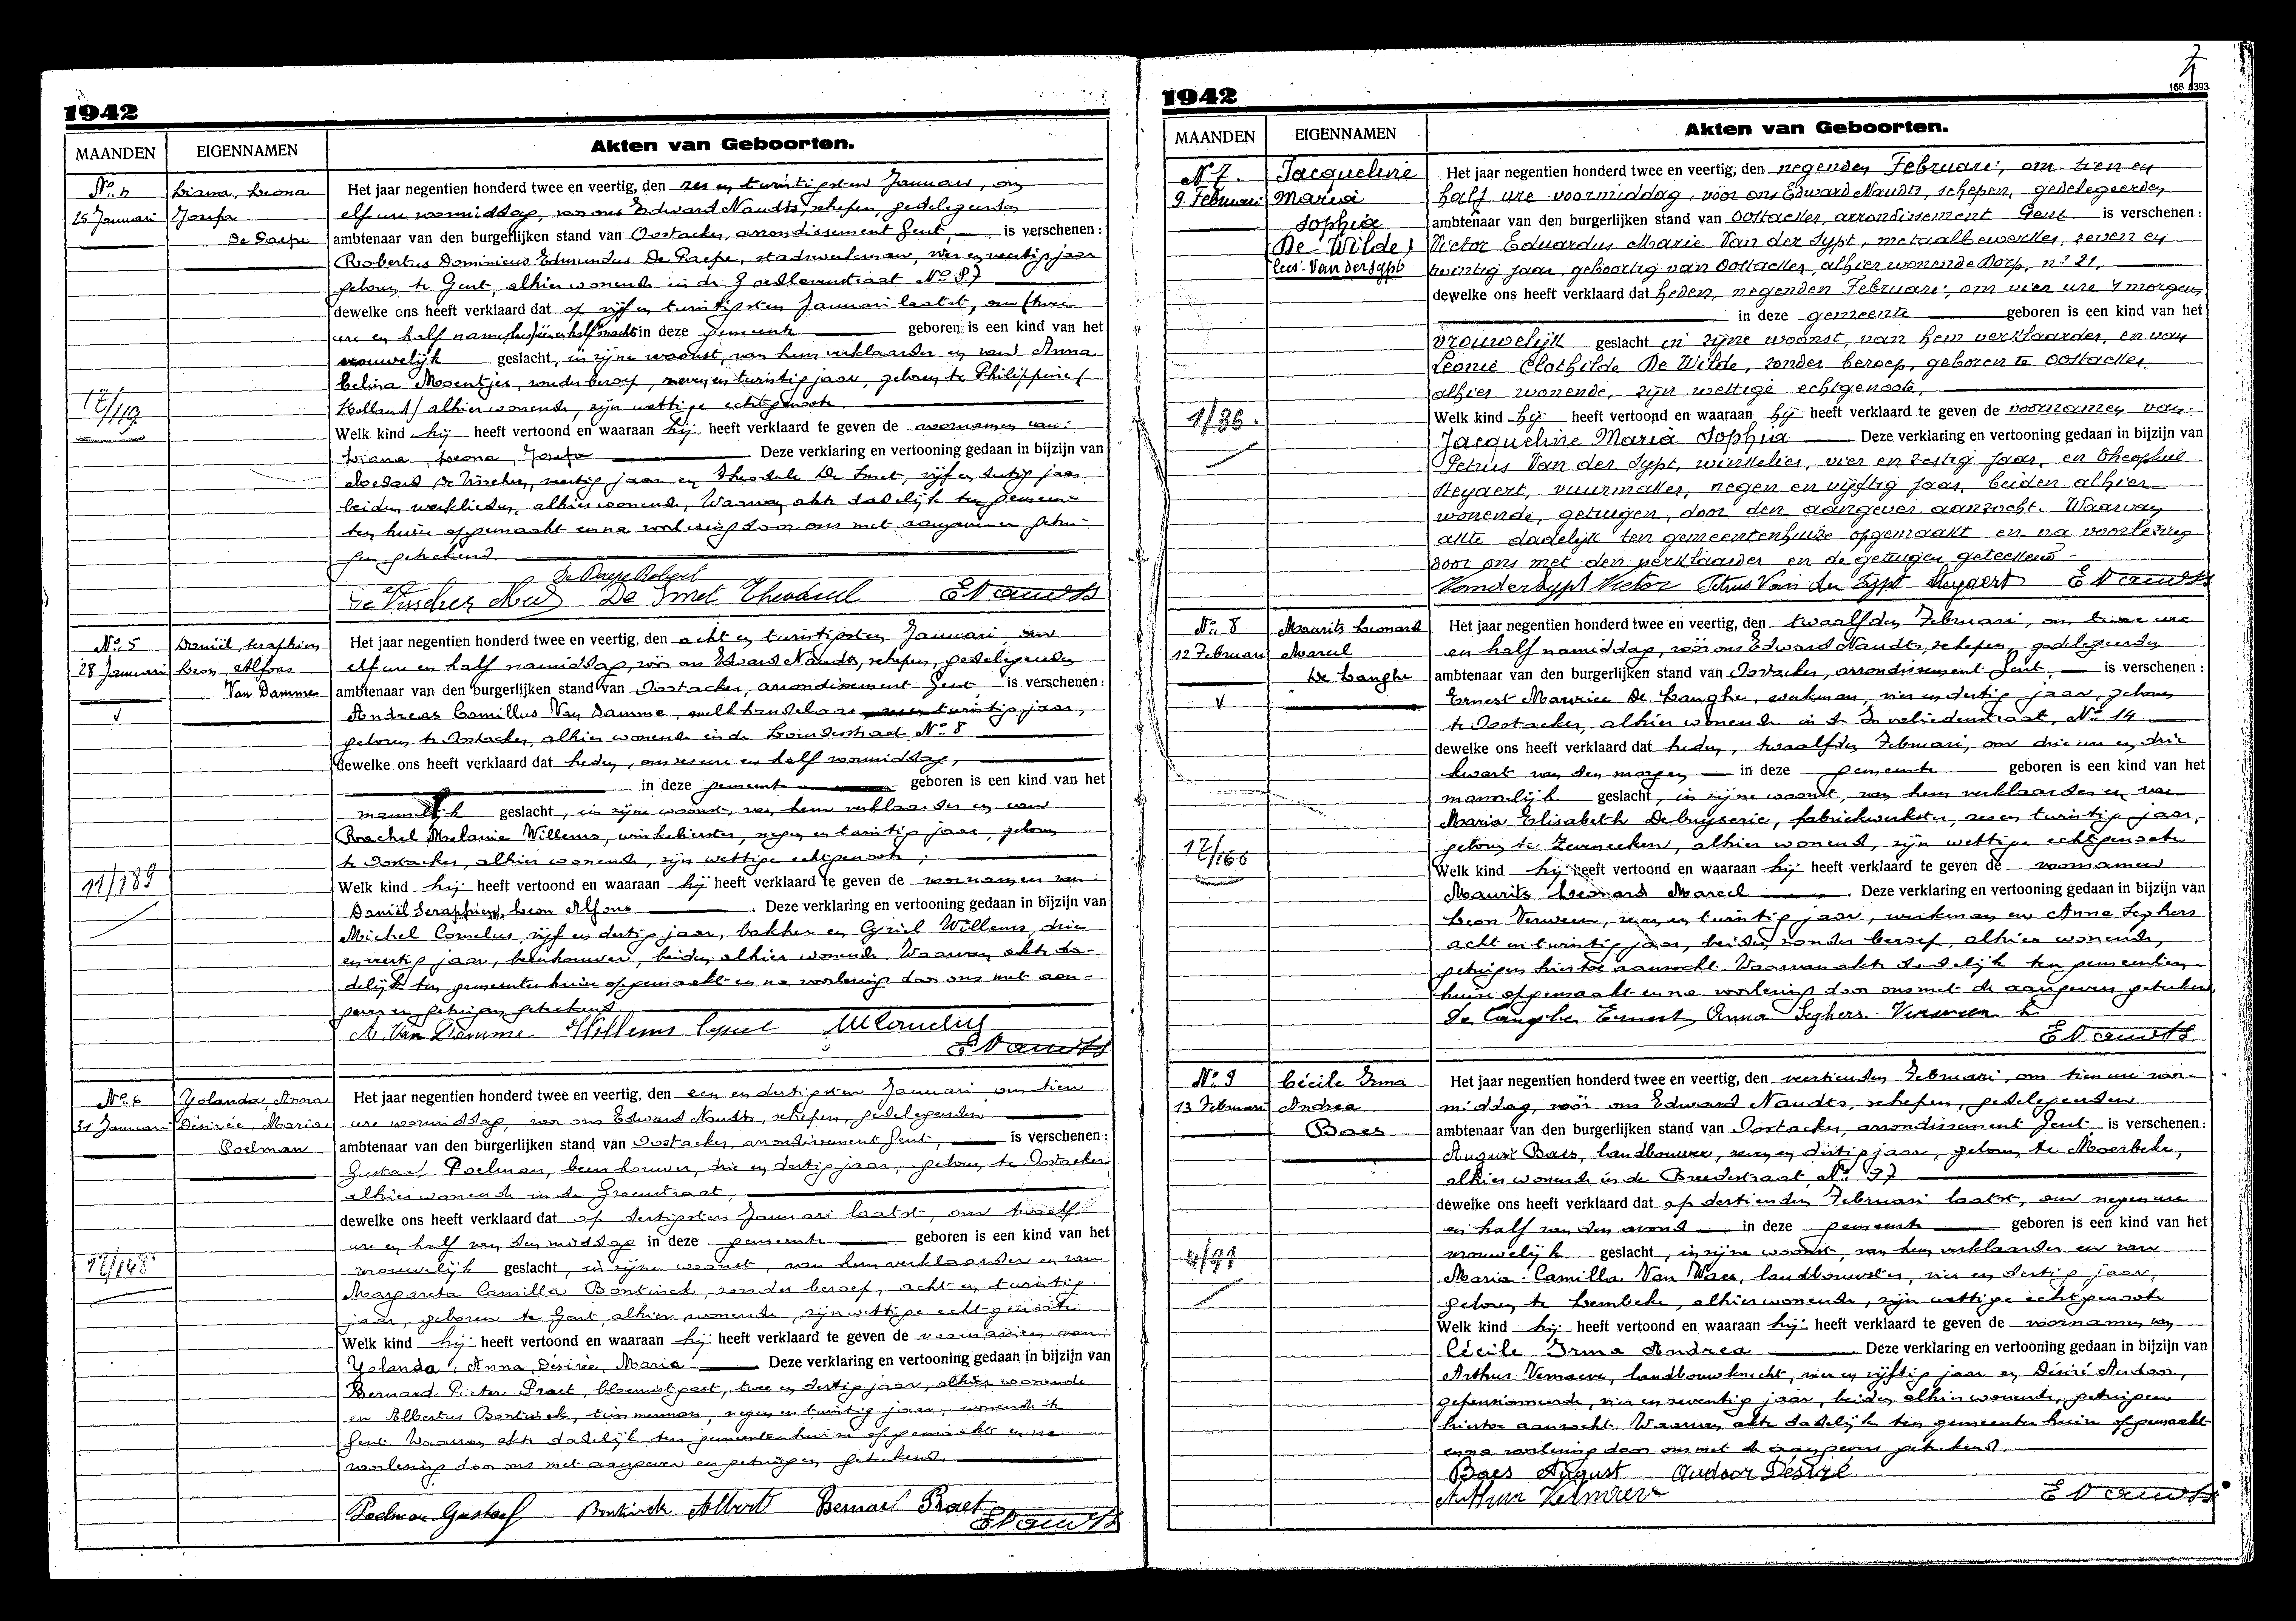 1942
MAANDEN
EIGENNAMEN
Akten van Geboorten.
No. 4
25 Januari
Liana, Leona
Josefa
De Paepe
17/119
Het jaar negentien honderd twee en veertig, den zes en twintigsten Januari, om
elf ure voormiddag, voor ons Edward Naudts, schepen, gedelegeerden
ambtenaar van den burgerlijken stand van Oostacker, arrondissement Gent, is verschenen:
Robertus Dominicus Edmundus De Paepe, stadswerkman, vier en veertig jaar
geboren te Gent, alhier wonende in de straat No 87
dewelke ons heeft verklaard dat op vijf en twintigsten Januari laatst, om twee
ure en half in deze gemeente geboren is een kind van het
vrouwelijk geslacht, in zijne woonst, van hem verklaarder en van Anna
Celina Moentjes, zonder beroep, en twintig jaar, geboren te Philippine (
Holland) alhier wonende, zijn wettige echtgenoote.
Welk kind hij heeft vertoond en waaraan hij heeft verklaard te geven de voornamen van:
Liana, Leona, Josefa Deze verklaring en vertooning gedaan in bijzijn van
Medard De Visscher, veertig jaar en Theodule De Smet, vijf en dertig jaar
beiden werklieden, alhier wonende, Waarvan akte dadelijk ten gemeen-
ten huize opgemaakt en na voorlezing door ons met aangever en getui-
gen geteekend.
De Paepe Robert
De Visscher Med De Smet Theoduul E Naudts
No. 5
28 Januari
Daniël, Seraphien
Leon, Alfons
Van Damme
11/189
Het jaar negentien honderd twee en veertig, den acht en twintigsten Januari, om
elf ure en half namiddag, vóór ons Edward Naudts, schepen, gedelegeerden
ambtenaar van den burgerlijken stand van Oostacker, arrondissement Gent, is verschenen:
Andreas Camillus Van Damme, melkhandelaar twintig jaar,
geboren te Oostacker, alhier wonende in de straat No 8
dewelke ons heeft verklaard dat heden, om zes ure en half voormiddag,
in deze gemeente geboren is een kind van het
mannelijk geslacht, in zijne woonst, van hem verklaarder en van
Rachel Melanie Willems, winkelierster, negen en twintig jaar, geboren
te Oostacker, alhier wonende, zijn wettige echtgenoote;
Welk kind hij heeft vertoond en waaraan hij heeft verklaard te geven de voornamen van:
Daniël Seraphien, Leon Alfons Deze verklaring en vertooning gedaan in bijzijn van
Michel Cornelus, vijf en dertig jaar, bakker en Cyriel Willems, drie
en veertig jaar, beenhouwer, beiden alhier wonende. Waarvan akte da-
delijk ten gemeentenhuize opgemaakt en na voorlezing door ons met aan-
gever en getuigen geteekend.
A. Van Damme Willems Cyriel M Cornelus
E Naudts
No. 6
31 Januari
Yolanda, Anna
Désirée, Maria
Poelman
17/148
Het jaar negentien honderd twee en veertig, den een en dertigsten Januari om tien
ure voormiddag, voor ons Edward Naudts, schepen, gedelegeerden
ambtenaar van den burgerlijken stand van Oostacker, arrondissement Gent, is verschenen:
Gustaaf Poelman, beenhouwer, drie en dertig jaar, geboren te Oostacker
alhier wonende in de Groenstraat,
dewelke ons heeft verklaard dat op dertigsten Januari laatst, om twaalf
ure en half van den middag in deze gemeente geboren is een kind van het
vrouwelijk geslacht, in zijne woonst, van hem verklaarder en van
Margareta Camilla Bontinck, zonder beroep, acht en twintig
jaar, geboren te Gent, alhier wonende, zijn wettige echtgenoote
Welk kind hij heeft vertoond en waaraan hij heeft verklaard te geven de voornamen van:
Yolanda, Anna, Désirée, Maria Deze verklaring en vertooning gedaan in bijzijn van
Bernard Pieter Praet, bloemist gast, twee en dertig jaar, alhier wonende
en Albertus Bontinck, timmerman, negen en twintig jaar, wonende te
Gent. Waarvan akte dadelijk ten gemeentenhuize opgemaakt en na
voorlezing door ons met aangever en getuigen geteekend.
Poelman Gustaaf Bontinck Albert Bernard Praet
E Naudts
1942
7
168 393
MAANDEN
EIGENNAMEN
Akten van Geboorten.
No 7.
9 Februari
Jacqueline
Maria
Sophia
(De Wilde)
lees: Van der Sypt
1/36.
Het jaar negentien honderd twee en veertig, den negenden Februari, om tien en
half ure voormiddag, vóór ons Edward Naudts, schepen, gedelegeerden
ambtenaar van den burgerlijken stand van Oostacker, arrondissement Gent is verschenen:
Victor Eduardus Marie Van der Sypt, metaalbewerker, zeven en
twintig jaar, geboortig van Oostacker, alhier wonende Dorp, no 21,
dewelke ons heeft verklaard dat heden, negenden Februari, om vier ure 's morgens
in deze gemeente geboren is een kind van het
vrouwelijk geslacht in zijne woonst, van hem verklaarder, en van
Leonie Clothilde De Wilde, zonder beroep, geboren te Oostacker,
alhier wonende, zijn wettige echtgenoote.
Welk kind hij heeft vertoond en waaraan hij heeft verklaard te geven de voornamen van:
Jacqueline Maria Sophia Deze verklaring en vertooning gedaan in bijzijn van
Petrus Van der Sypt, winkelier, vier en zestig jaar, en Theophiel
Steyaert, vuurmaker, negen en vijftig jaar, beiden alhier
wonende, getuigen, door den aangever aanzocht. Waarvan
akte dadelijk ten gemeentenhuize opgemaakt en na voorlezing
door ons met den verklaarder en de getuigen geteekend.
Vandersypt Victor Petrus Van der Sypt Steyaert E Naudts
No. 8
12 Februari
Maurits Leonard
Marcel
De Langhe
17/166
Het jaar negentien honderd twee en veertig, den twaalfden Februari, om twee ure
en half namiddag, vóór ons Edward Naudts, schepen, gedelegeerden
ambtenaar van den burgerlijken stand van Oostacker, arrondissement Gent, is verschenen:
Ernest Maurice De Langhe, werkman, vier en dertig jaar, geboren
te Oostacker, alhier wonende in de Invaliedenstraat, No 14
dewelke ons heeft verklaard dat heden, twaalfden Februari, om drie ure en drie
kwart van den morgen in deze gemeente geboren is een kind van het
mannelijk geslacht, in zijne woonst, van hem verklaarder en van
Maria Elisabeth Debuyserie, fabriekwerkster, zes en twintig jaar,
geboren te Zevenecken, alhier wonende, zijn wettige echtgenoote
Welk kind hij heeft vertoond en waaraan hij heeft verklaard te geven de voornamen
Maurits Leonard Marcel Deze verklaring en vertooning gedaan in bijzijn van
Leon Verween, zeven en twintig jaar, werkman en Anna Seghers
acht en twintig jaar, beiden zonder beroep, alhier wonende,
getuigen hiertoe aanzocht. Waarvan akte dadelijk ten gemeenten-
huize opgemaakt en na voorlezing door ons met de aangevers geteekend
De Langhe Ernest Anna Seghers Verween L
E Naudts
No. 9
13 Februari
Cécile Irma
Andrea
Baes
4/91
Het jaar negentien honderd twee en veertig, den veertienden Februari, om tien ure voor-
middag, vóór ons Edward Naudts, schepen, gedelegeerden
ambtenaar van den burgerlijken stand van Oostacker, arrondissement Gent is verschenen:
August Baes, landbouwer, zeven en dertig jaar, geboren te Moerbeke,
alhier wonende in de Breedestraat, No 97
dewelke ons heeft verklaard dat op dertienden Februari laatst, om negen ure
en half van den avond in deze gemeente geboren is een kind van het
vrouwelijk geslacht, in zijne woonst, van hem verklaarder en van
Maria Camilla Van Waes, landbouwster, vier en dertig jaar,
geboren te Lembeke, alhier wonende, zijn wettige echtgenoote
Welk kind hij heeft vertoond en waaraan hij heeft verklaard te geven de voornamen van
Cécile Irma Andrea Deze verklaring en vertooning gedaan in bijzijn van
Arthur Vernaeve, landbouwknecht, vier en vijftig jaar en Désiré Audoor,
gepensionneerde, vier en zeventig jaar, beiden alhier wonende, getuigen
hiertoe aanzocht. Waarvan akte dadelijk ten gemeentenhuize opgemaakt
en na voorlezing door ons met de aangevers geteekend.
Baes August Audoor Désiré
Arthur Vernaeve E Naudts